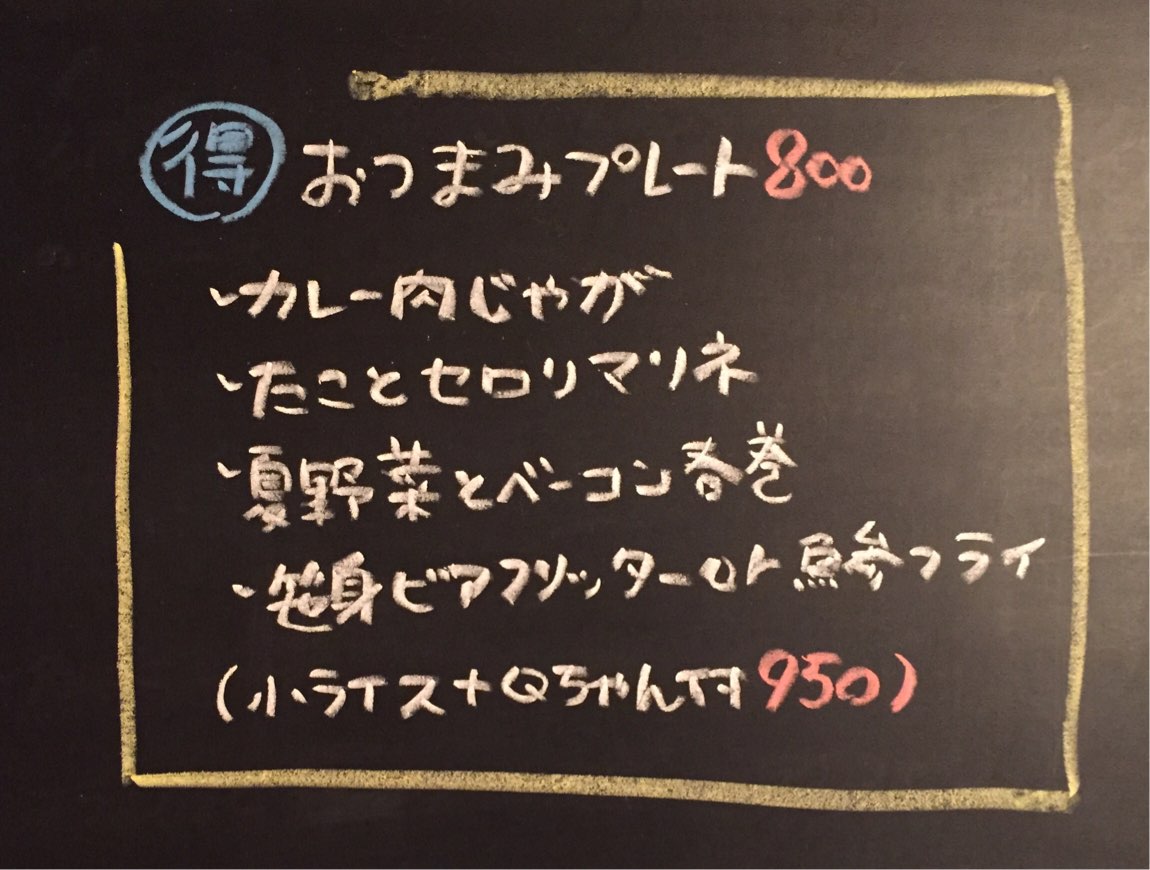 得 おつまみプレート800
・カレー肉じゃが
・たことセロリマリネ
・夏野菜とベーコン春巻
・笹身ビアフリッターor鯵フライ
(小ライス+Qちゃん付950)